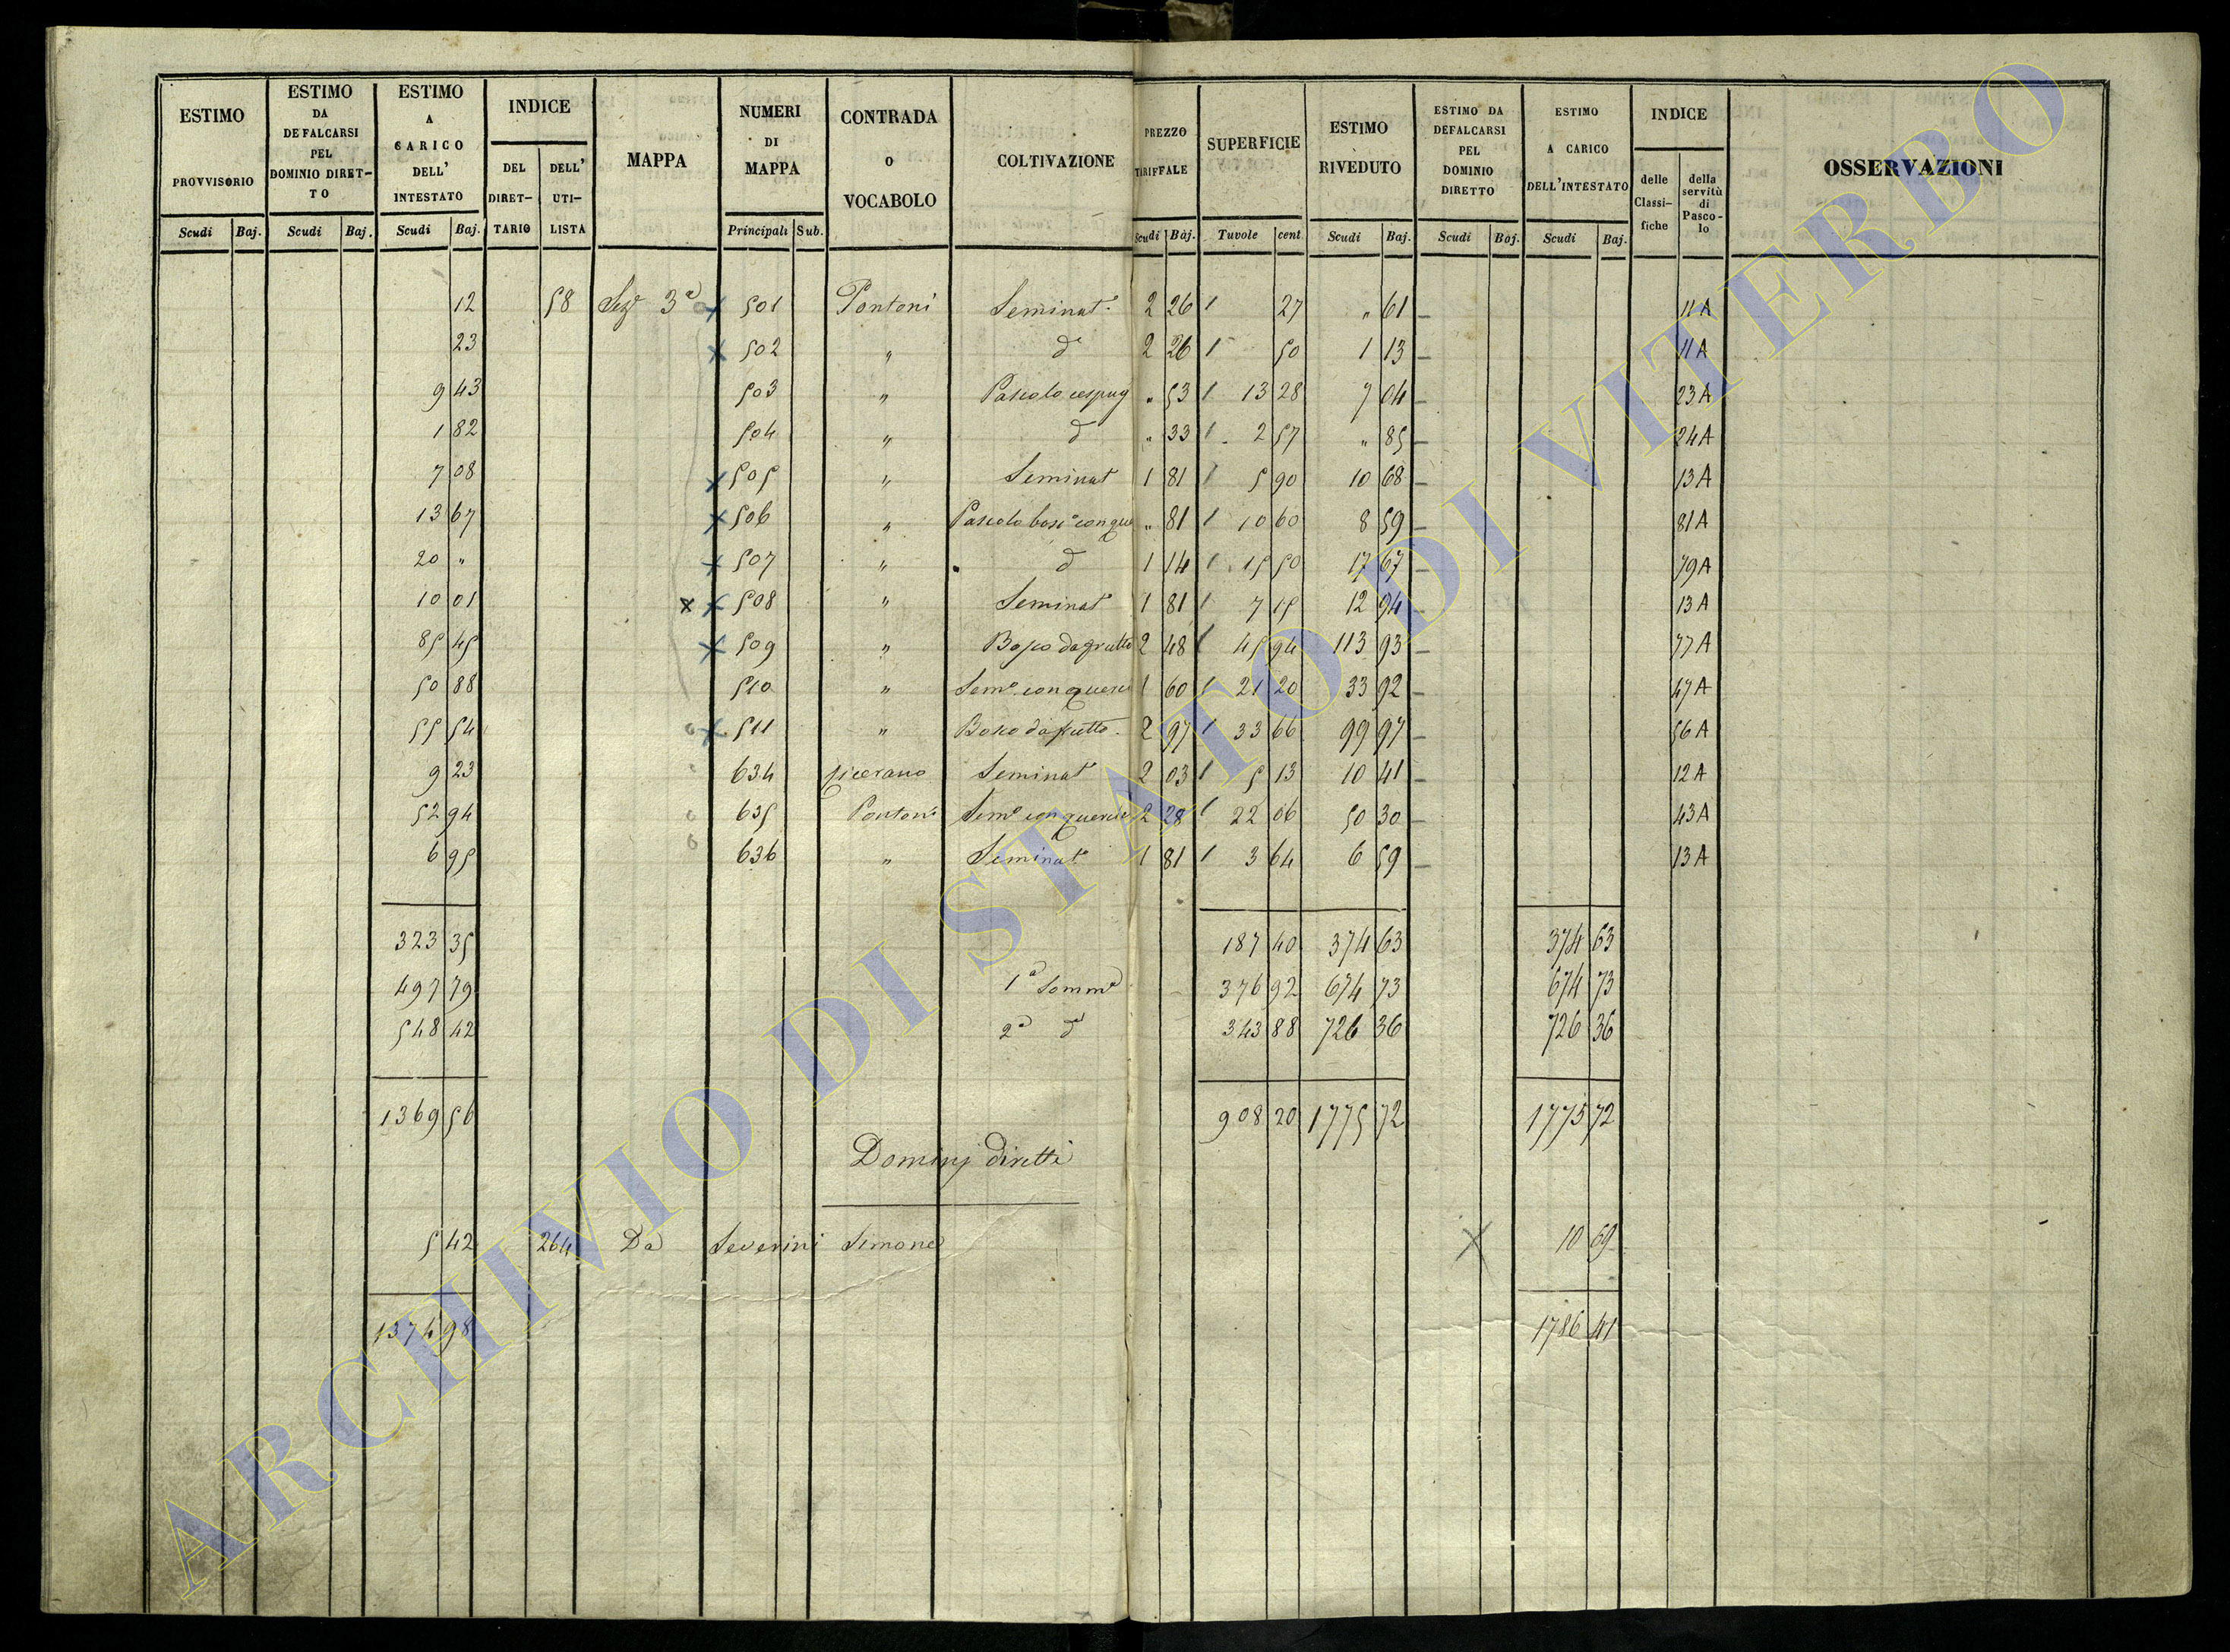 ESTIMO PROVVISORIO | ESTIMO DA DEFALCARSI PEL DOMINIO DIRET-TO | ESTIMO A CARICO DELL' INTESTATO | INDICE DEL DIRET-TARIO | DELL' UTI-LISTA | MAPPA | NUMERI DI MAPPA | CONTRADA O VOCABOLO | COLTIVAZIONE | PREZZO TARIFFALE | SUPERFICIE | ESTIMO RIVEDUTO | ESTIMO DA DEFALCARSI PEL DOMINIO DIRETTO | ESTIMO A CARICO DELL'INTESTATO | INDICE delle Classi-fiche | della servitù di Pasco-lo | OSSERVAZIONI
Scudi Baj. Scudi Baj. Scudi Baj. Principali Sub. Scudi Baj. Tavole cent. Scudi Baj. Scudi Baj. Scudi Baj.
12 58 Sez. 3a 501 Pontoni Seminat. 2 26 27 " 61 11 A
23 502 " d 2 26 50 1 13 11 A
9 43 503 " Pascolo cespug " 53 13 28 7 04 23 A
1 82 504 " d " 33 2 57 " 85 24 A
7 08 505 " Seminat 1 81 5 90 10 68 13 A
13 67 506 " Pascolo bosc. con que " 81 10 60 8 59 81 A
20 " 507 " d 1 14 15 50 17 67 79 A
10 01 508 " Seminat 1 81 7 15 12 94 13 A
85 45 509 " Bosco da frutto 2 48 45 94 113 93 77 A
50 88 510 " Sem. con querci 1 60 21 20 33 92 47 A
55 54 511 " Bosco da frutto 2 97 33 66 99 97 56 A
9 23 634 Seminat 2 03 5 13 10 41 12 A
52 94 635 Pontoni Sem. con querci 2 28 22 06 50 30 43 A
6 95 636 " Seminat 1 81 3 64 6 59 13 A
323 35 187 40 374 63 374 63
497 79 1a Somma 376 92 674 73 674 73
548 42 2a d 343 88 726 36 726 36
1369 56 908 20 1775 72 1775 72
Dominj diretti
5 42 264 Da Severini Simone 10 69
1374 98 1786 41
ARCHIVIO DI STATO DI VITERBO